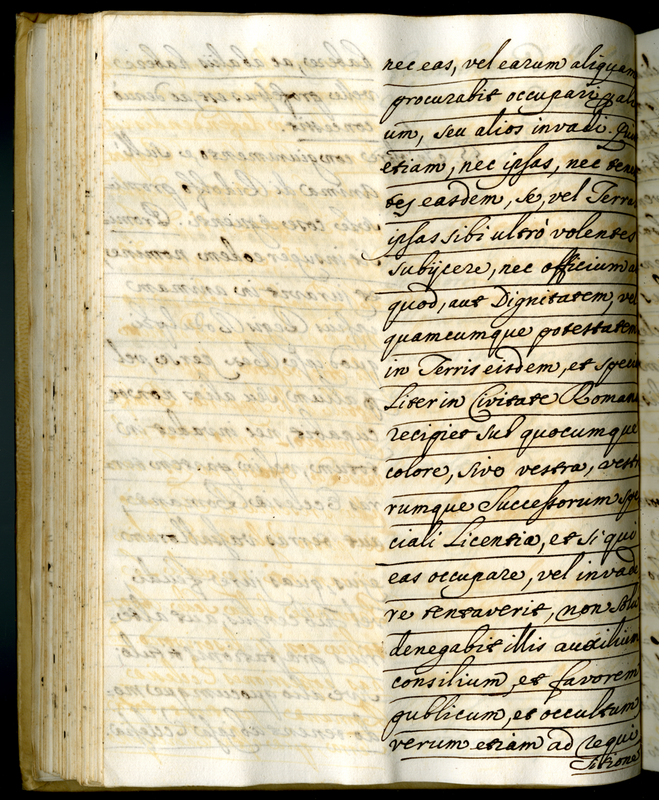 nec eas, vel earum aliquam
procurabit occupari, quali
um, seu alios invadi. Qui
etiam, nec ipsas, nec tenen
tes easdem, se, vel Terras
ipsas sibi ultrò volentes
subijcere, nec officium a
quod, aut Dignitatem, vel
quamcumque potestatem
in Terris eisdem, et specia
Liter in Civitate Romana
recipiet sub quocumque
colore, sivo vestra, vestr
rumque Successorum spe
ciali Licentia, et si qui
eas occupare, vel invade
re tentaverit, non solu
denegabit illis auxilium
consilium, et favorem
publicum, et occultum
verum etiam ad requi
sitione